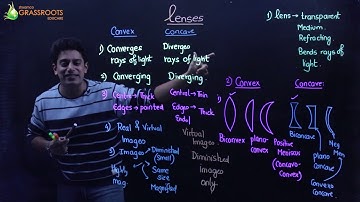 GRASSROOTS
lenses
Convex Concave
1) Converges rays of light
Diverges rays of light
2) Converging Diverging
3) Central → Thick
Edges → pointed
Central → Thin
Edges → Thick
4) Real & Virtual
Images
Virtual
Images
5) Images
Diminished
(Small)
Same
size
Magnified
Diminished
Images
only
1) lens → transparent
Medium
Refracting
Bends rays of
light
2) Convex Concave
Biconvex
plano-
convex
Positive
Meniscus
(Concavo-
Convex)
Biconcave
plano
Concave
Convexo
Concave